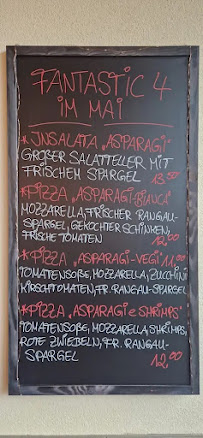 FANTASTIC 4
IM MAI
* INSALATA „ASPARAGI"
GROßER SALATTELLER MIT
FRISCHEM SPARGEL 13.50
* PIZZA „ASPARAGI-BIANCA"
MOZZARELLA, FRISCHER RANGAU-
SPARGEL, GEKOCHTER SCHINKEN,
FRISCHE TOMATEN 12.00
* PIZZA „ASPARAGI-VEGI" 11.00
TOMATENSOßE, MOZZARELLA, ZUCCHINI
KIRSCHTOMATEN, FR. RANGAU-SPARGEL
* PIZZA „ASPARAGI e SHRIMPS"
TOMATENSOßE, MOZZARELLA, SHRIMPS,
ROTE ZWIEBELN, FR. RANGAU-
SPARGEL 12.00